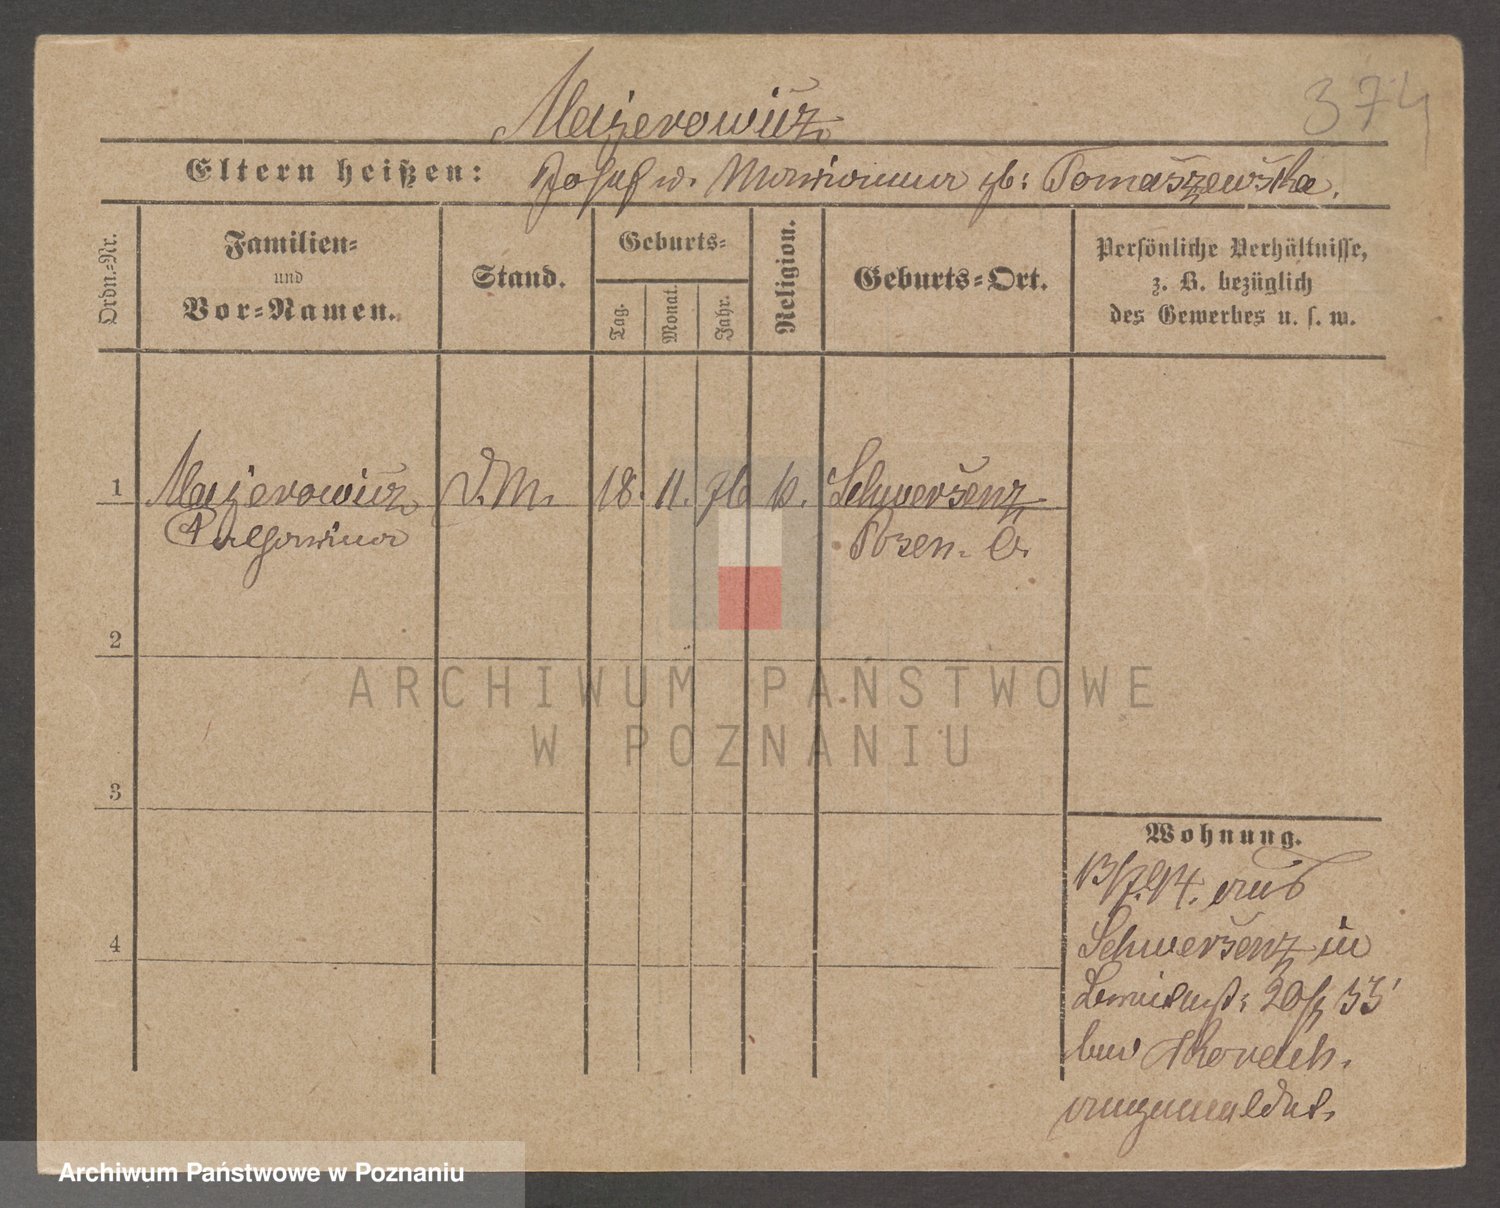 Majerowicz
374
Eltern heißen: Josef u. Marianna gb: Tomaszewska.
Ordn.-Nr.
Familien-
und
Vor-Namen.
Stand.
Geburts-
Tag.
Monat.
Jahr.
Religion.
Geburts-Ort.
Persönliche Verhältnisse,
z. B. bezüglich
des Gewerbes u. s. w.
1 Majerowicz D.M. 18. 11. 76 k. Schwersenz
Pelagia Posen. O.
2
3
4
Wohnung.
13/7.94. aus
Schwersenz in
20/ 33
bei
angemeldet.
ARCHIWUM PAŃSTWOWE
W POZNANIU
Archiwum Państwowe w Poznaniu